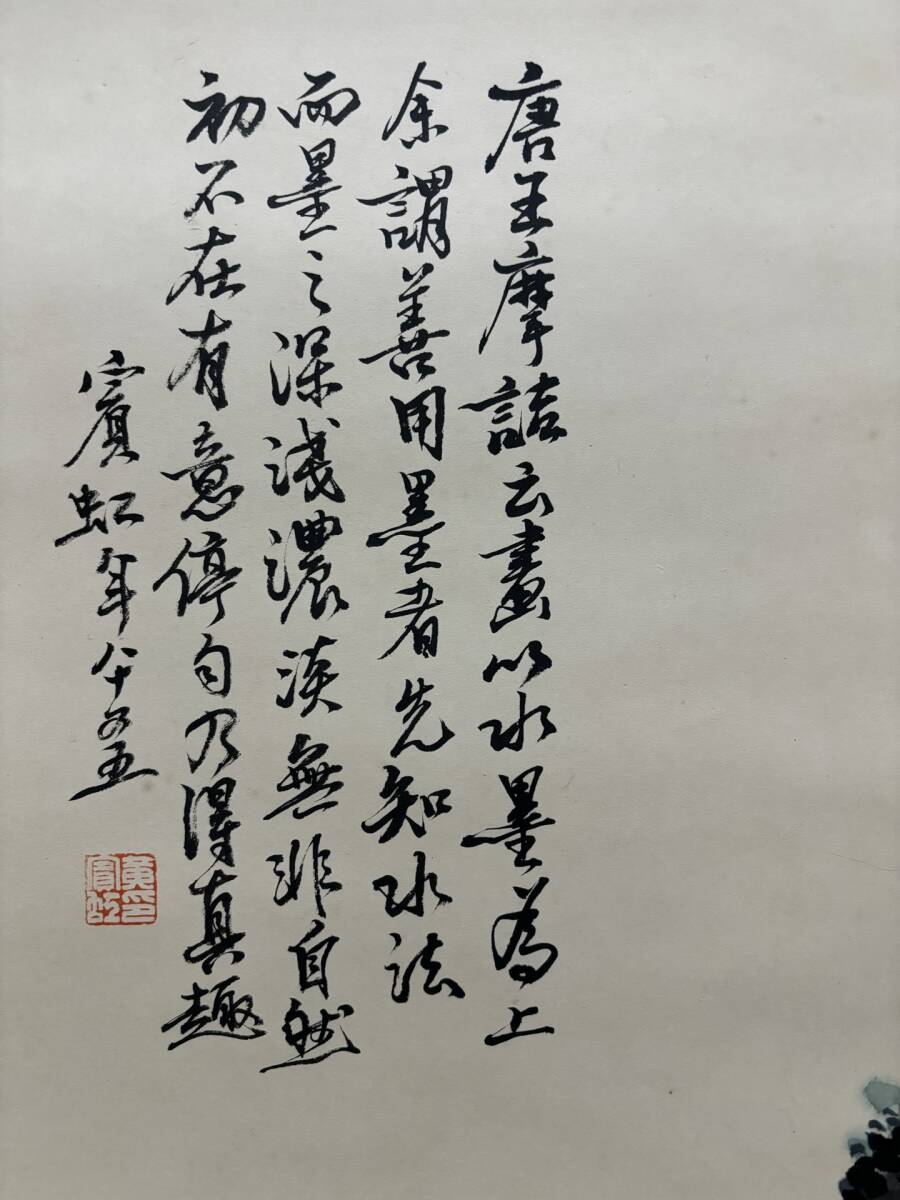 唐王摩詰云畫以水墨為上
余謂善用墨者先知水法
而墨之深淺濃淡無非自然
初不在有意停勻乃得真趣
賓虹年八十又五
黃賓虹印